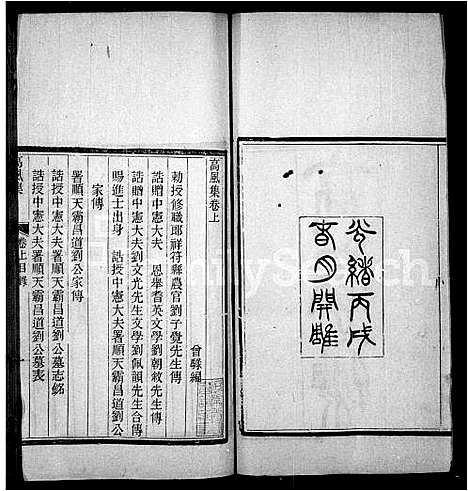 光緒丙戌
春月開雕
高風集卷上
曾舜編
勅授修職郎祥符縣農官劉子覺先生傳
誥贈中憲大夫 恩舉耆英文學劉朝敘先生傳
誥贈中憲大夫劉文光先生文學劉佩韻先生合傳
賜進士出身 誥授中憲大夫署順天霸昌道劉公
家傳
署順天霸昌道劉公家傳
誥授中憲大夫署順天霸昌道劉公墓志銘
誥授中憲大夫署順天霸昌道劉公墓表
高風集
卷上目錄
一